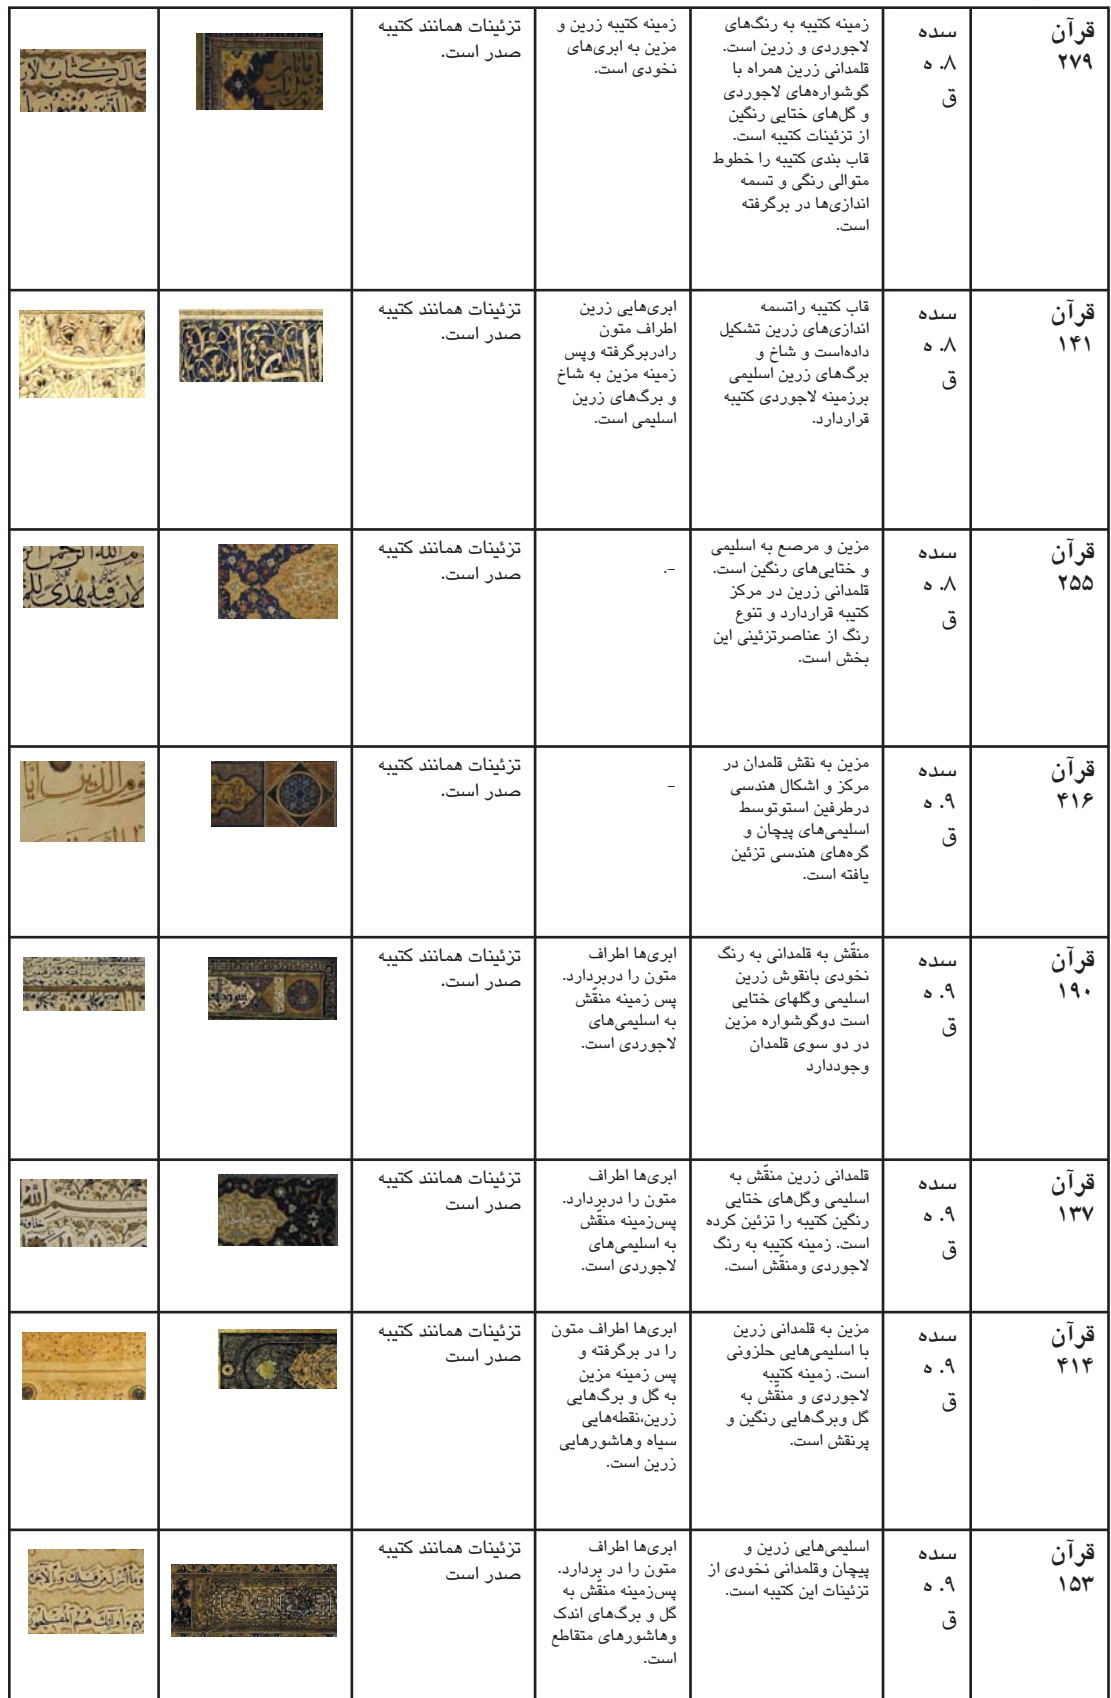 قرآن
۲۷۹
سده
۸. ه
ق
زمینه کتیبه به رنگ‌های
لاجوردی و زرین است.
قلمدانی زرین همراه با
گوشواره‌های لاجوردی
و گل‌های ختایی رنگین
از تزئینات کتیبه است.
قاب بندی کتیبه را خطوط
متوالی رنگی و تسمه
اندازی‌ها در برگرفته
است.
زمینه کتیبه زرین و
مزین به ابری‌های
نخودی است.
تزئینات همانند کتیبه
صدر است.
قرآن
۱۴۱
سده
۸. ه
ق
قاب کتیبه راتسمه
اندازی‌های زرین تشکیل
داده‌است و شاخ و
برگ‌های زرین اسلیمی
برزمینه لاجوردی کتیبه
قراردارد.
ابری‌هایی زرین
اطراف متون
رادربرگرفته وپس
زمینه مزین به شاخ
و برگ‌های زرین
اسلیمی است.
تزئینات همانند کتیبه
صدر است.
قرآن
۲۵۵
سده
۸. ه
ق
مزین و مرصع به اسلیمی
و ختایی‌های رنگین است.
قلمدانی زرین در مرکز
کتیبه قراردارد و تنوع
رنگ از عناصرتزئینی این
بخش است.
-.
تزئینات همانند کتیبه
صدر است.
قرآن
۴۱۶
سده
۹. ه
ق
مزین به نقش قلمدان در
مرکز و اشکال هندسی
درطرفین استوتوسط
اسلیمی‌های پیچان و
گره‌های هندسی تزئین
یافته است.
-
تزئینات همانند کتیبه
صدر است.
قرآن
۱۹۰
سده
۹. ه
ق
منقّش به قلمدانی به رنگ
نخودی بانقوش زرین
اسلیمی وگلهای ختایی
است دوگوشواره مزین
در دو سوی قلمدان
وجوددارد
ابری‌ها اطراف
متون را دربردارد.
پس زمینه منقّش
به اسلیمی‌های
لاجوردی است.
تزئینات همانند کتیبه
صدر است.
قرآن
۱۳۷
سده
۹. ه
ق
قلمدانی زرین منقّش به
اسلیمی وگل‌های ختایی
رنگین کتیبه را تزئین کرده
است. زمینه کتیبه به رنگ
لاجوردی ومنقّش است.
ابری‌ها اطراف
متون را دربردارد.
پس‌زمینه منقّش
به اسلیمی‌های
لاجوردی است.
تزئینات همانند کتیبه
صدر است
قرآن
۴۱۴
سده
۹. ه
ق
مزین به قلمدانی زرین
با اسلیمی‌هایی حلزونی
است. زمینه کتیبه
لاجوردی و منقّش به
گل وبرگ‌هایی رنگین و
پرنقش است.
ابری‌ها اطراف متون
را در برگرفته و
پس زمینه مزین
به گل و برگ‌هایی
زرین،نقطه‌هایی
سیاه وهاشورهایی
زرین است.
تزئینات همانند کتیبه
صدر است
قرآن
۱۵۳
سده
۹. ه
ق
اسلیمی‌هایی زرین و
پیچان وقلمدانی نخودی از
تزئینات این کتیبه است.
ابری‌ها اطراف
متون را در بردارد.
پس‌زمینه منقّش به
گل و برگ‌های اندک
وهاشورهای متقاطع
است.
تزئینات همانند کتیبه
صدر است